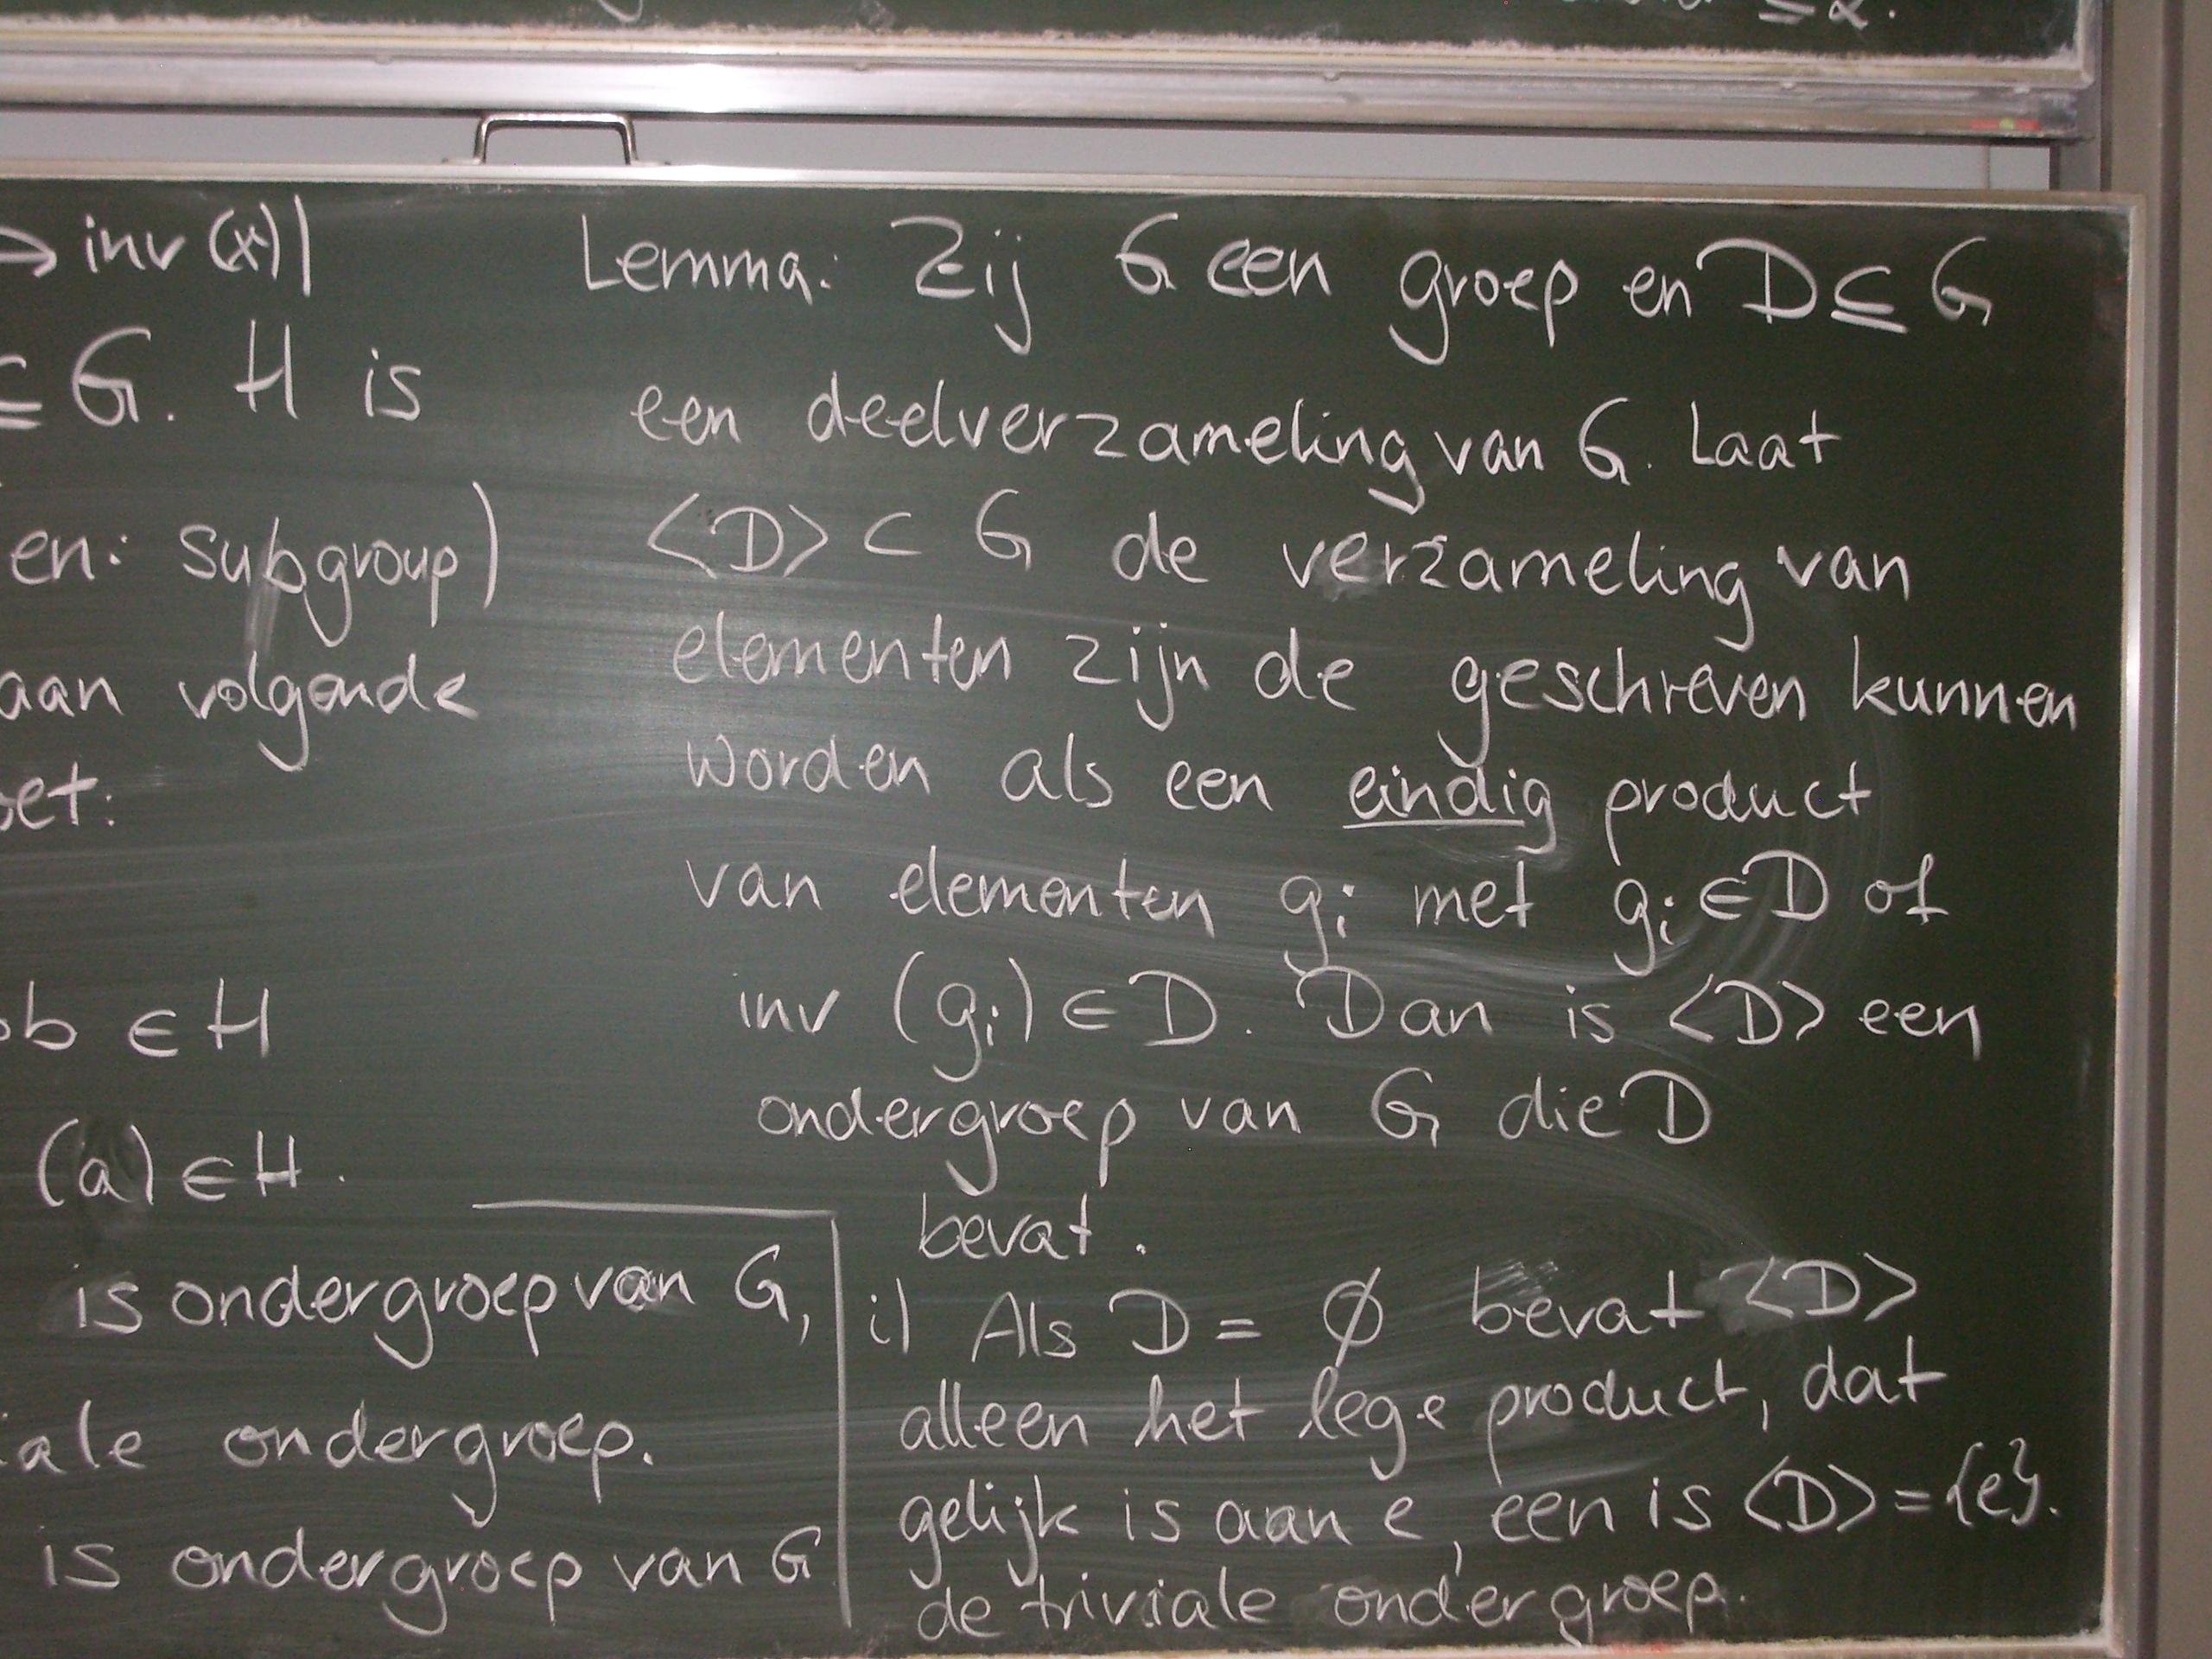 = α.
→ inv (x)|
⊆ G. H is
en: subgroup)
aan volgende
oet:
b ∈ H
(a) ∈ H.
is ondergroep van G,
iale ondergroep.
is ondergroep van G
Lemma: Zij G een groep en D ⊆ G
een deelverzameling van G. Laat
<D> ⊂ G de verzameling van
elementen zijn de geschreven kunnen
worden als een eindig product
van elementen gi met gi ∈ D of
inv (gi) ∈ D. Dan is <D> een
ondergroep van G die D
bevat.
i) Als D = ∅ bevat <D>
alleen het lege product, dat
gelijk is aan e, een is <D> = {e}.
de triviale ondergroep.